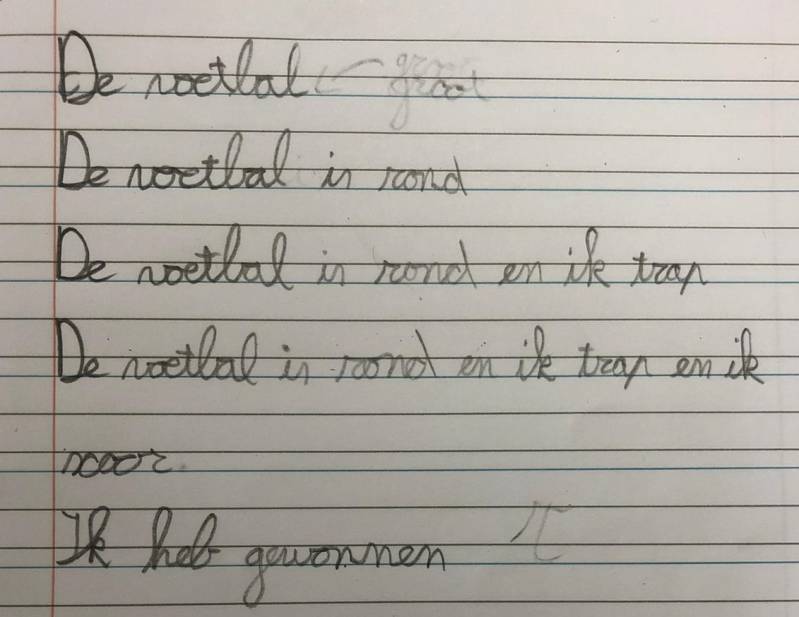 De voetbal groot
De voetbal is rond
De voetbal is rond en ik trap
De voetbal is rond en ik trap en ik
scoor.
Ik heb gewonnen